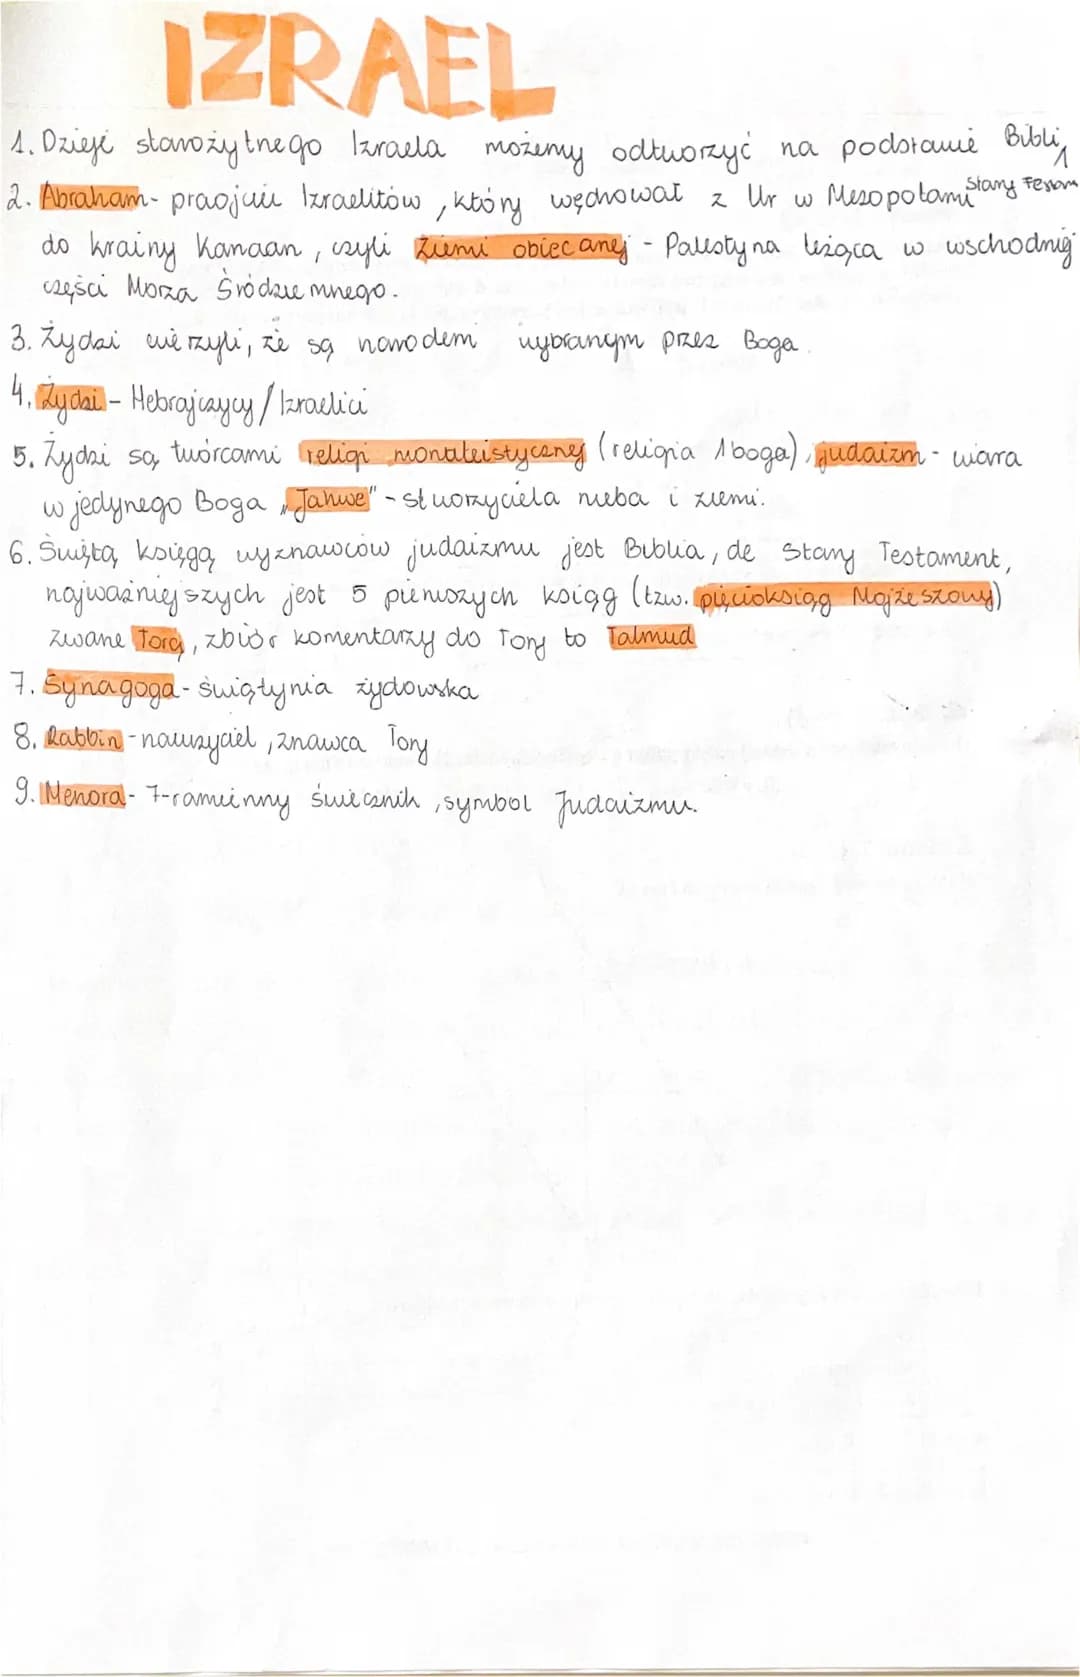 IZRAEL
1. Dzieje starożytnego Izraela możemy odtworzyć na podstawie Bibli,
Stary Testam
2. Abraham - praojciec Izraelitów, który wędrował z Ur w Mezopotami
do krainy Kanaan, czyli Ziemi obiecanej - Palestyna leżąca w wschodniej
części Morza Śródziemnego.
3. Żydzi wierzyli, że są narodem wybranym przez Boga.
4. Żydzi - Hebrajczycy / Izraelici
5. Żydzi są twórcami religi monoteistycznej (religia 1 boga), judaizm - wiara
w jedynego Boga „Jahwe" - stworzyciela nieba i ziemi.
6. Świętą księgą wyznawców judaizmu jest Biblia, de Stary Testament,
najważniejszych jest 5 pierwszych ksiąg (tzw. pięcioksiąg Mojżeszowy)
zwane Torą, zbiór komentarzy do Tory to Talmud
7. Synagoga - świątynia żydowska
8. Rabbin - nauczyciel, znawca Tory
9. Menora - 7-ramienny świecznik, symbol Judaizmu.